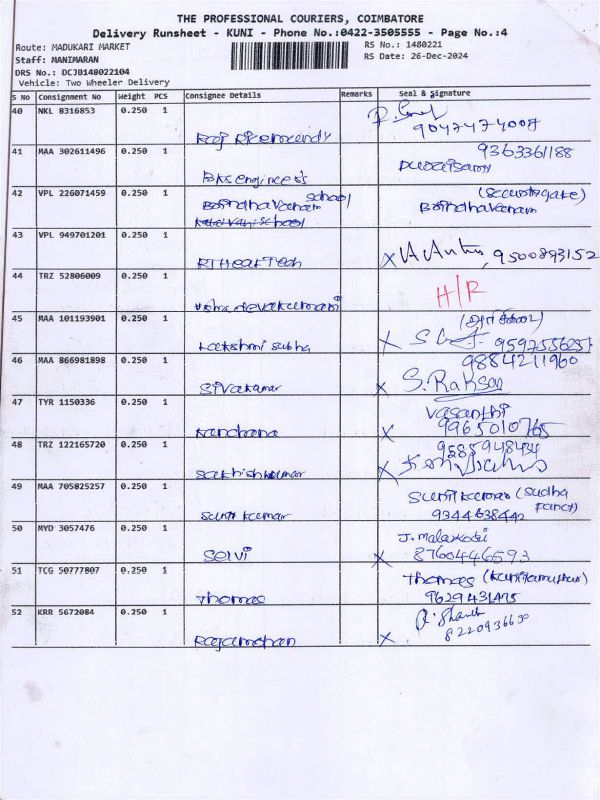 THE PROFESSIONAL COURIERS, COIMBATORE
Delivery Runsheet - KUNI - Phone No.:0422-3505555 - Page No.:4
Route: MADUKARI MARKET RS No.: 1480221
Staff: MANIMARAN RS Date: 26-Dec-2024
DRS No.: DCJB148022104
Vehicle: Two Wheeler Delivery
S No Consignment No Weight PCS Consignee Details Remarks Seal & Signature
40 NKL 8316853 0.250 1 9047474007
41 MAA 302611496 0.250 1 BKS engineers 9363361188
42 VPL 226071459 0.250 1 school (Security gate)
43 VPL 949701201 0.250 1 RT Hear Tech 9500893152
44 TRZ 52806009 0.250 1 usha devakumari H/R
45 MAA 101193901 0.250 1 Lakshmi subha
46 MAA 866981898 0.250 1 Sivakumar 9884211960
47 TYR 1150336 0.250 1 kanchana Vasanthi
9965010765
48 TRZ 122165720 0.250 1 sathish kumar 9585948434
49 MAA 705825257 0.250 1 sunil kumar Sunil kumar (Sudha
9344638442
50 MYD 3057476 0.250 1 selvi J. malarkodi
8760446593
51 TCG 50777807 0.250 1 Thomas Thomas
9629431475
52 KRR 5672084 0.250 1 Rajamohan 8220936630